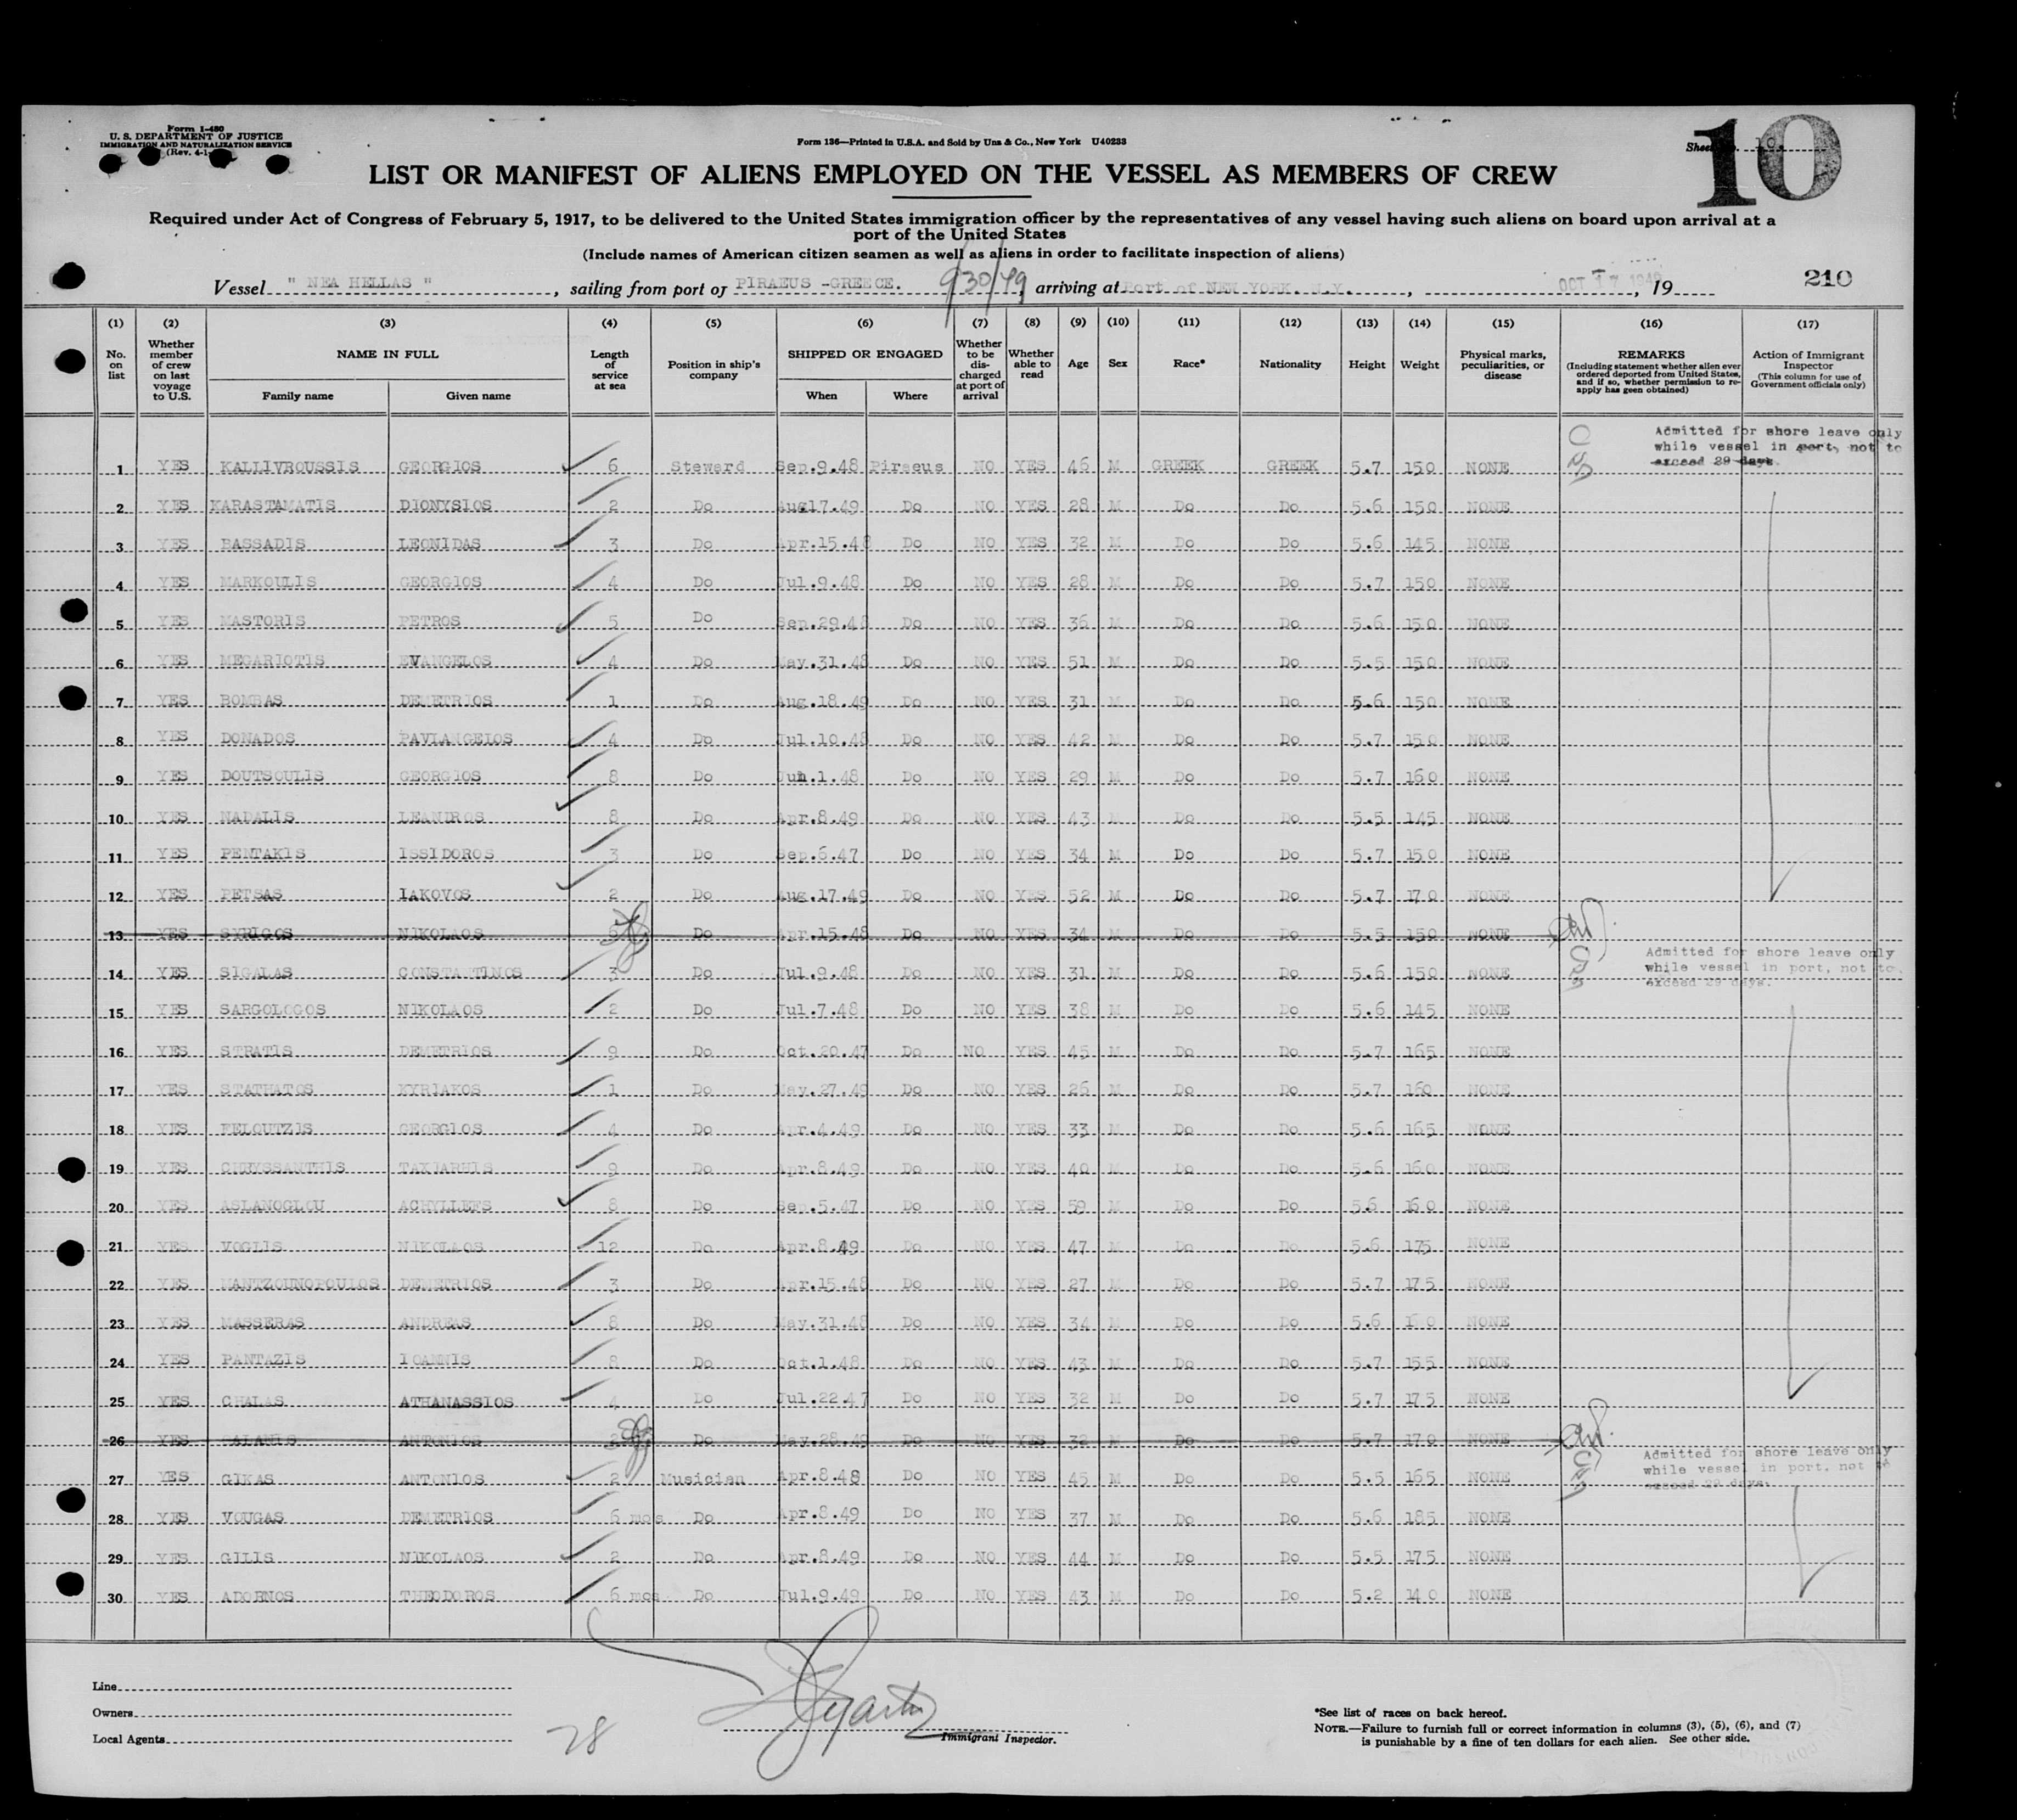 Form I-480
U. S. DEPARTMENT OF JUSTICE
IMMIGRATION AND NATURALIZATION SERVICE
(Rev. 4-1-
Form 136—Printed in U.S.A. and Sold by Unz & Co., New York U40233
Sheet No. 10
10
LIST OR MANIFEST OF ALIENS EMPLOYED ON THE VESSEL AS MEMBERS OF CREW
Required under Act of Congress of February 5, 1917, to be delivered to the United States immigration officer by the representatives of any vessel having such aliens on board upon arrival at a
port of the United States
(Include names of American citizen seamen as well as aliens in order to facilitate inspection of aliens)
Vessel " NEA HELLAS ", sailing from port of PIRAEUS -GREECE. 9/30/49, arriving at Port of NEW YORK. N.Y., OCT 17 1949, 19 210
(1) (2) (3) (4) (5) (6) (7) (8) (9) (10) (11) (12) (13) (14) (15) (16) (17)
No. on list Whether member of crew on last voyage to U.S. NAME IN FULL Family name Given name Length of service at sea Position in ship's company SHIPPED OR ENGAGED When Where Whether to be discharged at port of arrival Whether able to read Age Sex Race* Nationality Height Weight Physical marks, peculiarities, or disease REMARKS (Including statement whether alien ever ordered deported from United States, and if so, whether permission to re-apply has geen obtained) Action of Immigrant Inspector (This column for use of Government officials only)
Admitted for shore leave only
while vessel in port, not to
exceed 29 days.
1 YES KALLIVROUSSIS GEORGIOS 6 Steward Sep.9.48 Piraeus NO YES 46 M GREEK GREEK 5.7 150 NONE
2 YES KARASTAMATIS DIONYSIOS 2 Do Aug17.49 Do NO YES 28 M Do Do 5.6 150 NONE
3 YES BASSADIS LEONIDAS 3 Do Apr.15.48 Do NO YES 32 M Do Do 5.6 145 NONE
4 YES MARKOULIS GEORGIOS 4 Do Jul.9.48 Do NO YES 28 M Do Do 5.7 150 NONE
5 YES MASTORIS PETROS 5 Do Sep.29.48 Do NO YES 36 M Do Do 5.6 150 NONE
6 YES MEGARIOTIS EVANGELOS 4 Do May.31.48 Do NO YES 51 M Do Do 5.5 150 NONE
7 YES BOMBAS DEMETRIOS 1 Do Aug.18.49 Do NO YES 31 M Do Do 5.6 150 NONE
8 YES DONADOS PAVLANGELOS 4 Do Jul.10.48 Do NO YES 42 M Do Do 5.7 150 NONE
9 YES DOUTSOULIS GEORGIOS 8 Do Jun.1.48 Do NO YES 29 M Do Do 5.7 160 NONE
10 YES NADALIS LEANDROS 8 Do Apr.8.49 Do NO YES 43 M Do Do 5.5 145 NONE
11 YES PENTAKIS ISSIDOROS 3 Do Sep.6.47 Do NO YES 34 M Do Do 5.7 150 NONE
12 YES PETSAS IAKOVOS 2 Do Aug.17.49 Do NO YES 52 M Do Do 5.7 170 NONE
13 YES SYRIGOS NIKOLAOS 6 Do Apr.15.48 Do NO YES 34 M Do Do 5.5 150 NONE
Admitted for shore leave only
while vessel in port, not to
exceed 29 days.
14 YES SIGALAS CONSTANTINOS 3 Do Jul.9.48 Do NO YES 31 M Do Do 5.6 150 NONE
15 YES SARGOLOGOS NIKOLAOS 2 Do Jul.7.48 Do NO YES 38 M Do Do 5.6 145 NONE
16 YES STRATIS DEMETRIOS 9 Do Oct.20.47 Do NO YES 45 M Do Do 5.7 165 NONE
17 YES STATHATOS KYRIAKOS 1 Do May.27.49 Do NO YES 26 M Do Do 5.7 160 NONE
18 YES FELOUTZIS GEORGIOS 4 Do Apr.4.49 Do NO YES 33 M Do Do 5.6 165 NONE
19 YES CHRYSSANTHIS TAXIARHIS 9 Do Apr.8.49 Do NO YES 40 M Do Do 5.6 160 NONE
20 YES ASLANOGLOU ACHYLLEFS 8 Do Sep.5.47 Do NO YES 59 M Do Do 5.6 160 NONE
21 YES VOGLIS NIKOLAOS 12 Do Apr.8.49 Do NO YES 47 M Do Do 5.6 175 NONE
22 YES MANTZOUNOPOULOS DEMETRIOS 3 Do Apr.15.48 Do NO YES 27 M Do Do 5.7 175 NONE
23 YES MASSERAS ANDREAS 8 Do May.31.48 Do NO YES 34 M Do Do 5.6 NONE
24 YES PANTAZIS IOANNIS 8 Do Oct.1.48 Do NO YES 43 M Do Do 5.7 155 NONE
25 YES CHALAS ATHANASSIOS 4 Do Jul.22.47 Do NO YES 32 M Do Do 5.7 175 NONE
26 YES GALANIS ANTONIOS 2 Do May.28.49 Do NO YES 32 M Do Do 5.7 170 NONE
Admitted for shore leave only
while vessel in port, not to
exceed 29 days.
27 YES GIKAS ANTONIOS 2 Musician Apr.8.48 Do NO YES 45 M Do Do 5.5 165 NONE
28 YES VOUGAS DEMETRIOS 6 mos Do Apr.8.49 Do NO YES 37 M Do Do 5.6 185 NONE
29 YES GILIS NIKOLAOS 2 Do Apr.8.49 Do NO YES 44 M Do Do 5.5 175 NONE
30 YES ADORNOS THEODOROS 6 mos Do Jul.9.49 Do NO YES 43 M Do Do 5.2 140 NONE
Line
Owners
Local Agents
28
Immigrant Inspector.
*See list of races on back hereof.
NOTE.—Failure to furnish full or correct information in columns (3), (5), (6), and (7)
is punishable by a fine of ten dollars for each alien. See other side.